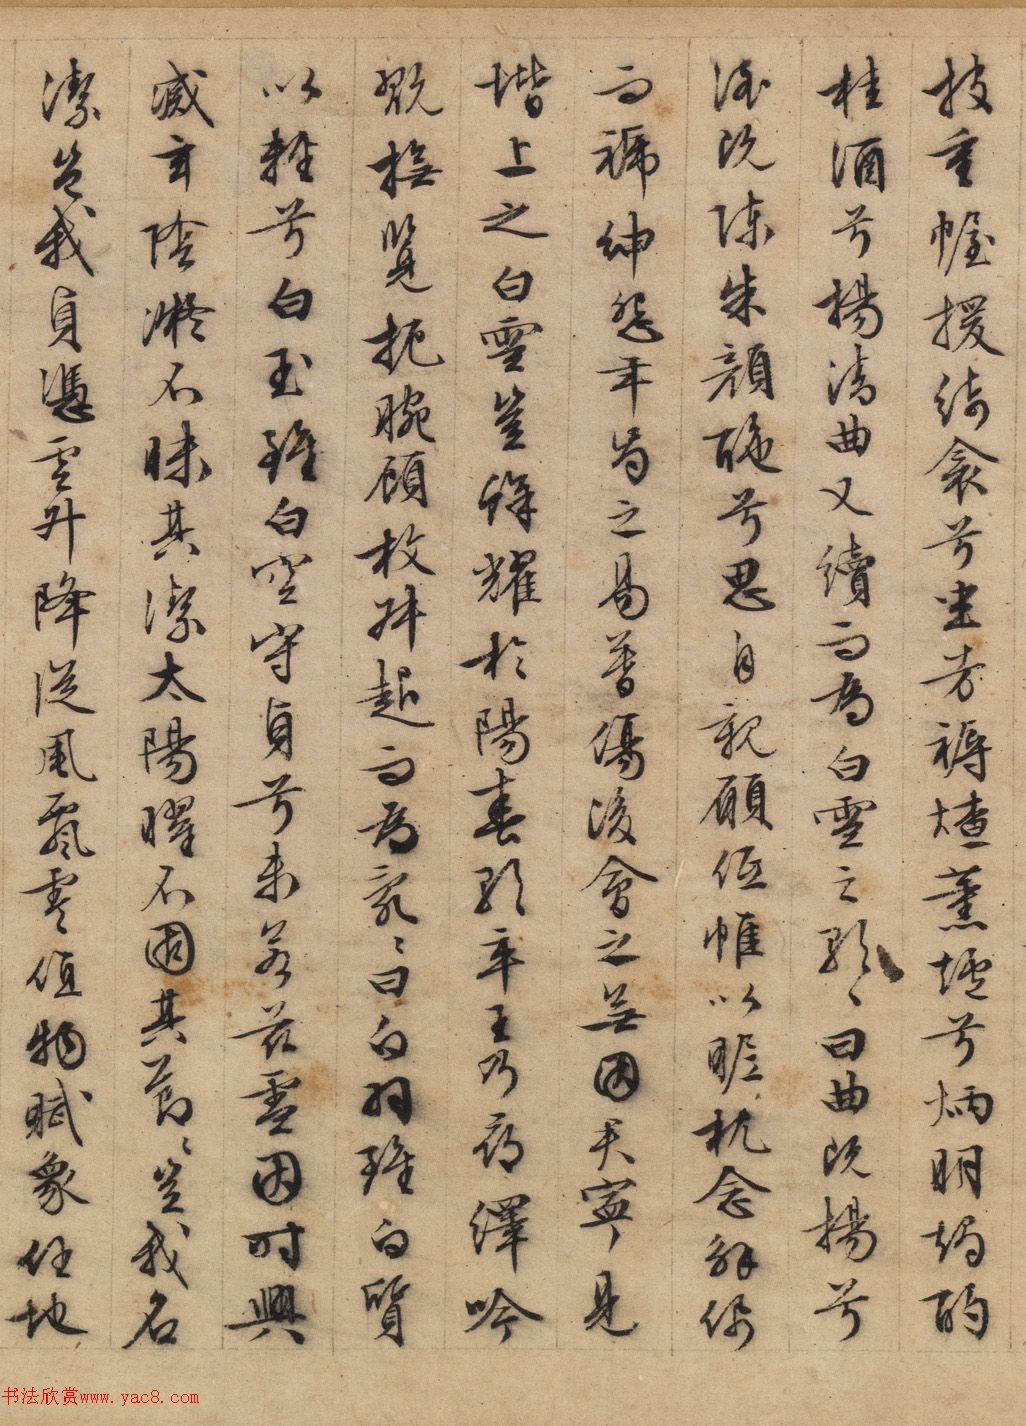 披重幄援綺衾兮坐芳褥燎薰爐兮炳明燭酌
桂酒兮揚清曲又續而為白雪之歌〻曰曲既揚兮
酒既陳朱顏酡兮思自親願低帷以昵枕念解佩
而褫紳怨年歲之易暮傷後會之無因君寧見
階上之白雪豈鮮耀於陽春歌卒王乃尋繹吟
翫撫覽扼腕顧枚叔起而為亂〻曰白羽雖白質
以輕兮白玉雖白空守貞兮未若茲雪因時興
滅玄陰凝不昧其潔太陽曜不固其節〻豈我名
潔豈我貞憑雲升降從風飄零值物賦象任地
书法欣赏www.yac8.com